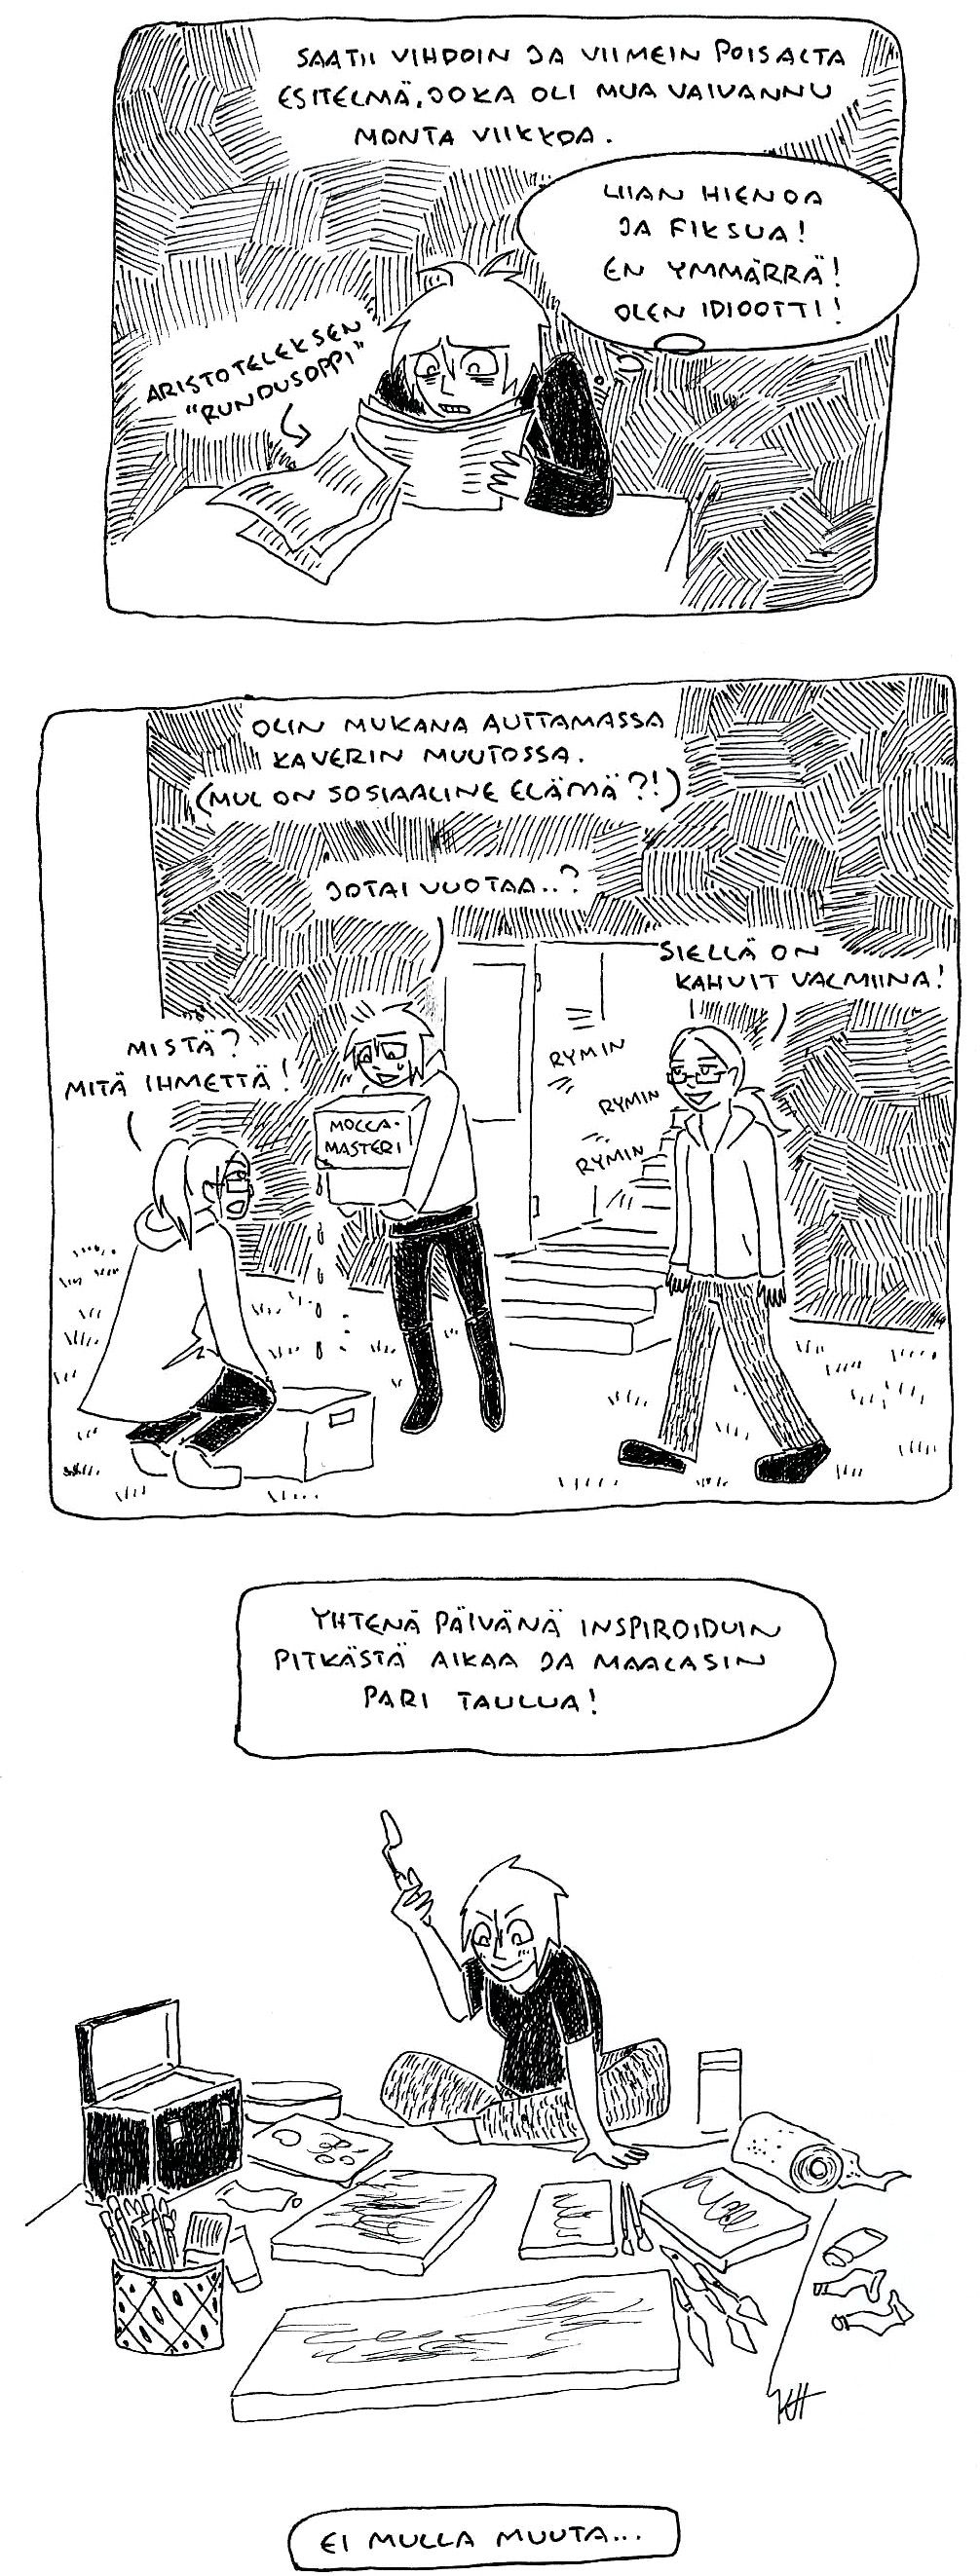 SAATII VIHDOIN JA VIIMEIN POIS ALTA
ESITELMÄ, JOKA OLI MUA VAIVANNU
MONTA VIIKKOA.
LIIAN HIENOA
JA FIKSUA!
EN YMMÄRRÄ!
OLEN IDIOOTTI!
ARISTOTELEKSEN
"RUNOUSOPPI"
OLIN MUKANA AUTTAMASSA
KAVERIN MUUTOSSA.
(MUL ON SOSIAALINE ELÄMÄ?!)
JOTAI VUOTAA..?
SIELLÄ ON
KAHVIT VALMIINA!
MISTÄ?
MITÄ IHMETTÄ!
RYMIN
RYMIN
RYMIN
MOCCA-
MASTERI
YHTENÄ PÄIVÄNÄ INSPIROIDUIN
PITKÄSTÄ AIKAA JA MAALASIN
PARI TAULUA!
KH
EI MULLA MUUTA...